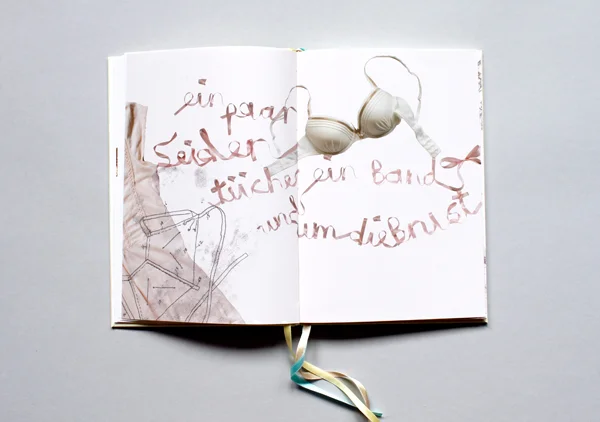 ein paar
Seiden
tücher ein Band
und um die Brust